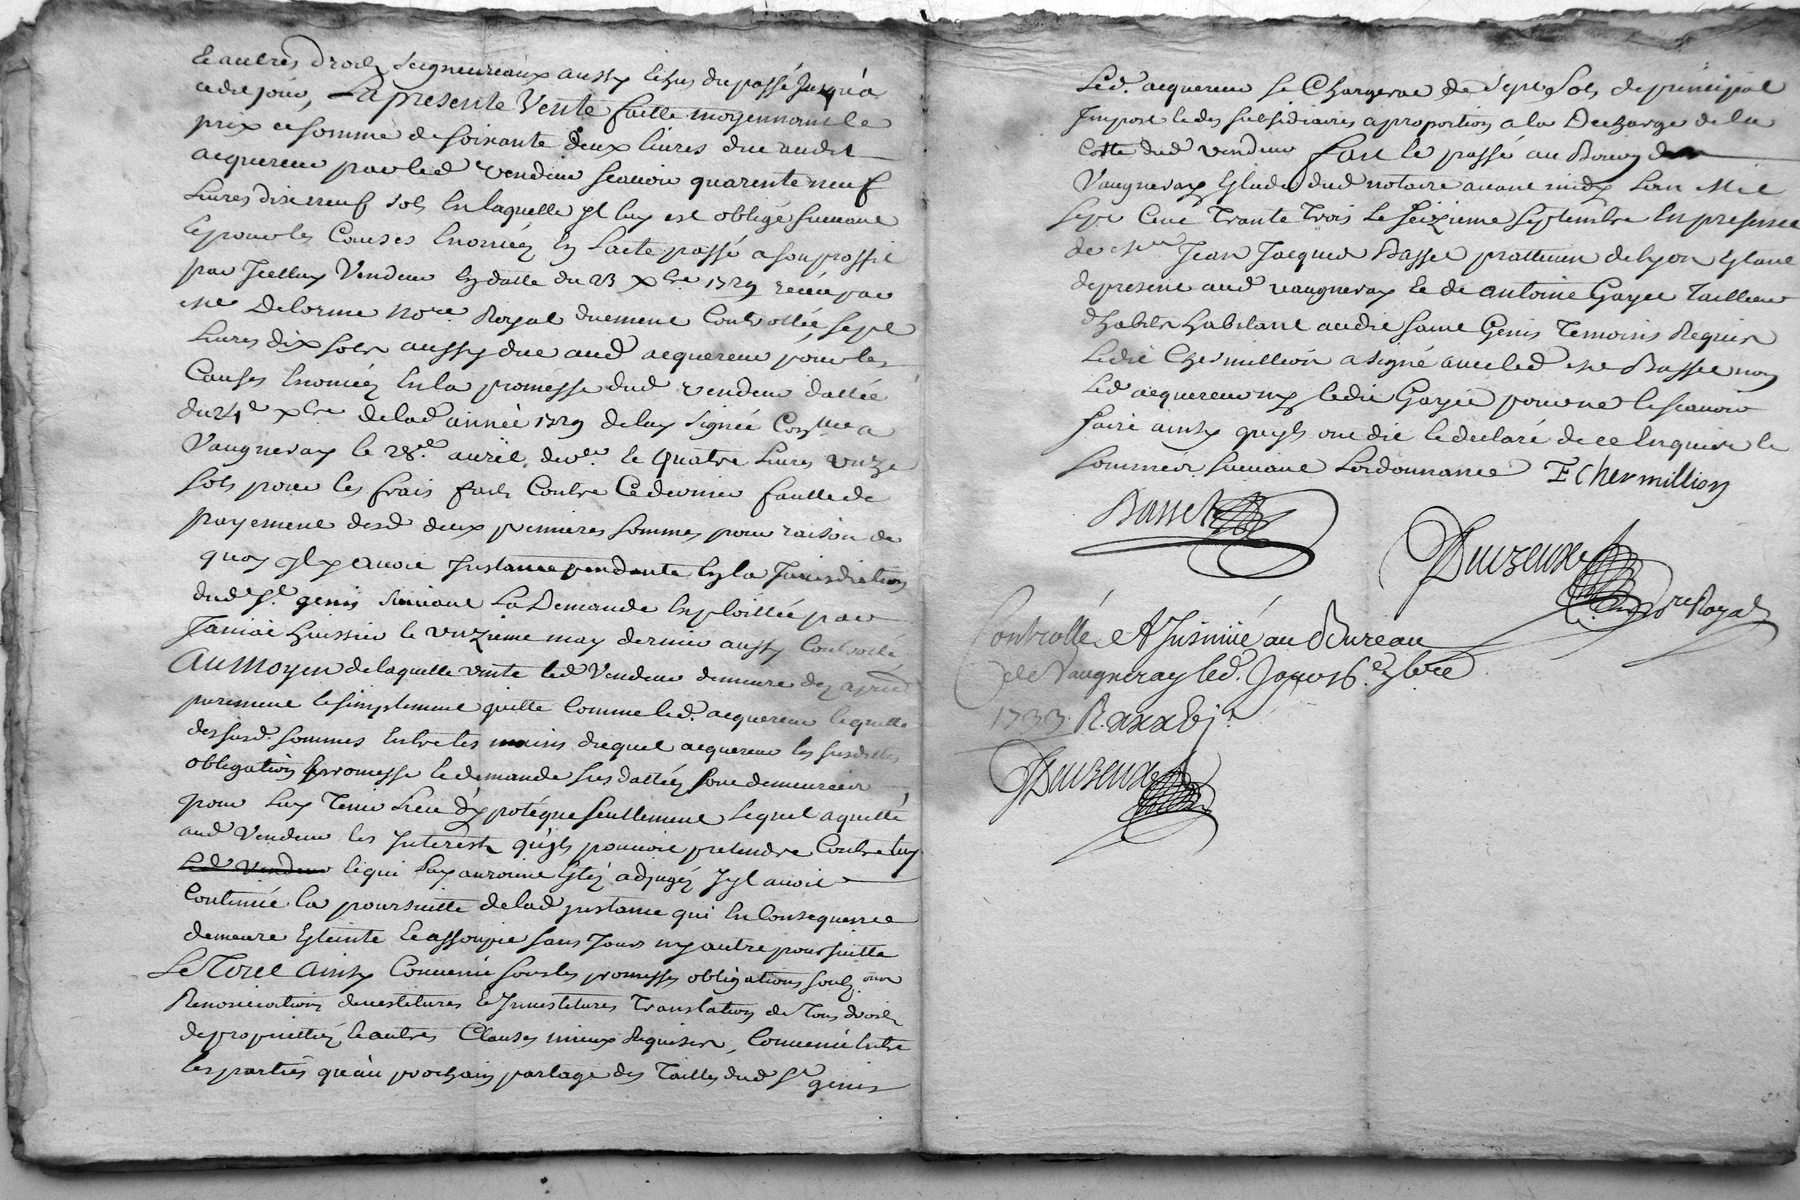 & autres droits seigneuriaux aussy echus du passé jusqu'a
cedit jour, La presente Vente faitte moyennant le
prix et somme de soixante deux livres due audit
acquereur par led vendeur scavoir quarente neuf
Livres dix neuf sols En laquelle yl luy est obligé suivant
& pour les Causes Enoncées En L'acte passé a son proffit
par Jcelluy Vendeur En datte du 23 xbre 1729 receu par
Me Delorme Nore Royal duement Controllée, sept
Livres dix sols aussy due aud acquereur pour les
Causes Enoncées En la promesse dud vendeur dattée
du 24e xbre de lad année 1729 de luy signée Conllée a
Vaugneray le 28e avril der & Quatre Livres unze
sols pour les frais faits Contre Ce dernier faulte de
payement desd deux premieres sommes pour raison de
quoy yl y avoit Instance pendante En la Jurisdiction
dud St genis suivant La Demande Exploittée par
Janiac huissier le unzieme may dernier aussy Controllé
Au Moyen de laquelle vente led Vendeur demeure
purement & simplement quitte Comme led. acquereur le quitte
des susd. sommes Entre les mains duquel acquereur les susdittes
obligation & promesse & demande sus dattées sont demeurées
pour Luy Tenir Lieu d'ypotéque seullement Lequel a quitté
aud Vendeur les Jnterests qu'yls pouvoit pretendre Contre luy
Led Vendeur & qui Luy auroient Esté adjugés sy yl avoit
Continué la poursuitte de lad Jnstance qui En Consequence
demeure Eteinte & assoupie sans Jours ny autre poursuitte
Le Tout Ainsy Convenu sous les promesses obligations soub
Renonciations devestitures & Jnvestitures Translation de Tous droits
de proprietées & autres Clauses mieux Requises, Convenu Entre
les parties qu'au prochain partage des Tailles dud St genis
Led. acquereur se Chargerat de sept sols de principal
Jmpost & des subsidiaires a proportion a la Decharge de la
Cotte dud vendeur fait & passé au Bourg de
Vaugneray Etude dud notaire avant midy L'an Mil
sept Cent Trante Trois Le seizieme septembre En presence
de Me Jean Jacques Basset pratticien de Lyon Etant
de present aud vaugneray & de antoine Gayet Tailleur
d'habits habitant audit saint Genis Temoins Requis
Ledit Chermillion a signé avec led Me Basset non
Led acquereur ny ledit Gayet pour ne le scavoir
faire ainsy qu'yls ont dit & declaré de ce Enquis &
sommés suivant L'ordonnance F Chermillion
Basset
Duizeux
nore Royal
Controllé & Insinué au Bureau
de Vaugneray led. Jour 16e 7bre
1733.
Duizeux